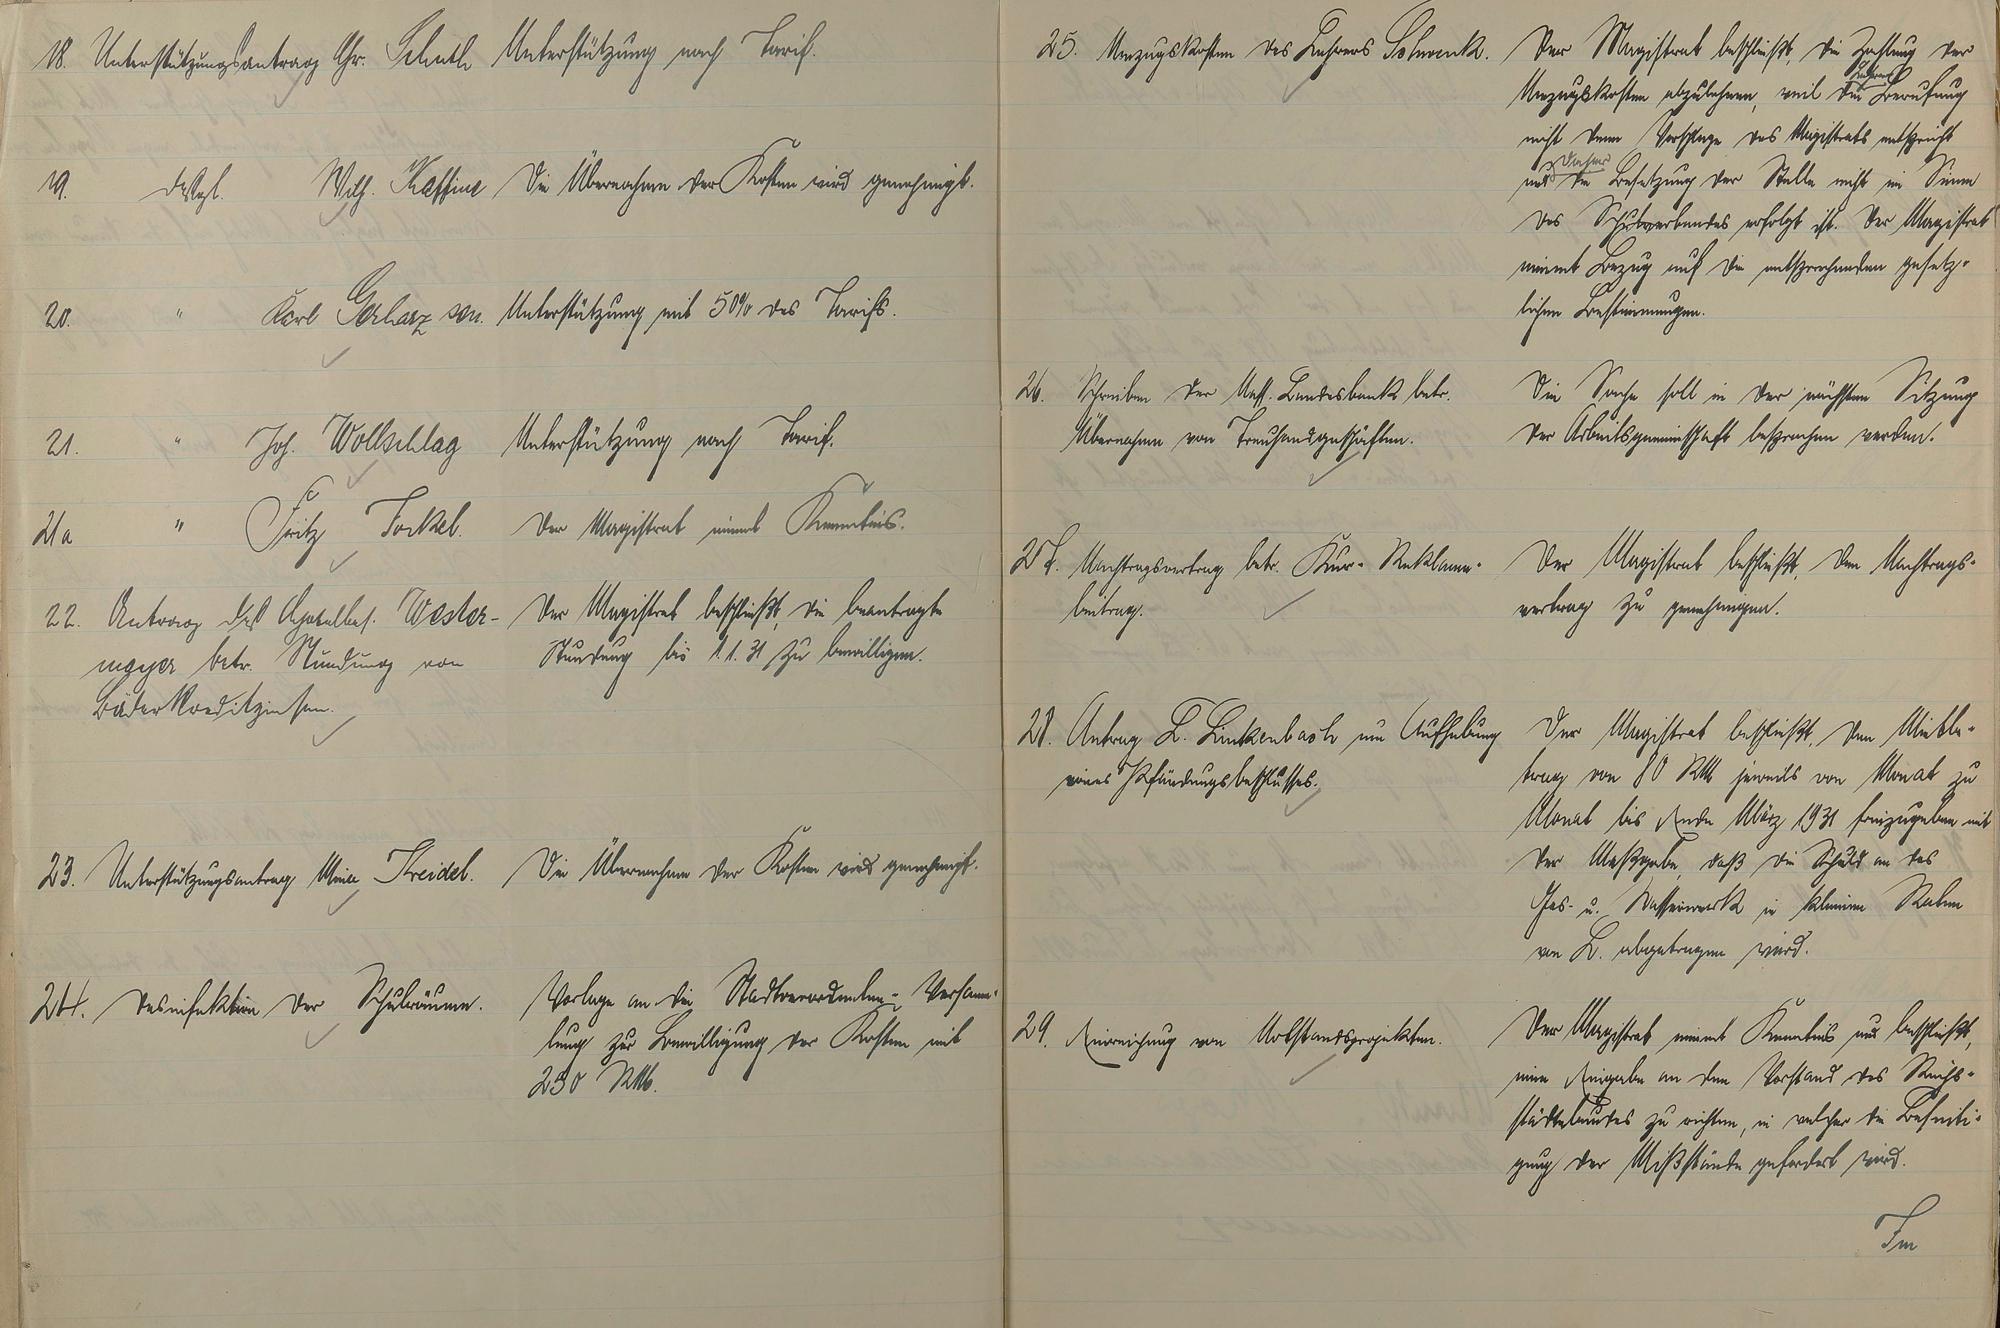 18. Unterstützungsantrag Chr. Schuth
Unterstützung nach Tarif.
19. desgl. Wilh. Kaffine
Die Übernahme der Kosten wird genehmigt.
20. " Karl Gerharz sen.
Unterstützung mit 50% des Tarifs.
21. " Joh. Wollschlag
Unterstützung nach Tarif.
21a " Fritz Fockel.
Der Magistrat nimmt Kenntnis.
22. Antrag des Hotelbes. Wester-
meyer betr. Stundung von
Bäderkreditzinsen.
Der Magistrat beschließt, die beantragte
Stundung bis 1.1.31 zu bewilligen.
23. Unterstützungsantrag Kreidel.
Die Übernahme der Kosten wird genehmigt.
24. Desinfektion der Schulräume.
Vorlage an die Stadtverordneten-Versamm-
lung zur Bewilligung der Kosten mit
250 RM.
25. Umzugskosten des Lehrers Schwenk.
Der Magistrat beschließt, die Zahlung der
Umzugskosten abzulehnen, weil die Berufung
nicht dem Vorschlage des Magistrats entspricht
und die Besetzung der Stelle nicht im Sinne
des Schulverbandes erfolgt ist. Der Magistrat
nimmt Bezug auf die entsprechenden gesetz-
lichen Bestimmungen.
26. Schreiben der Nass. Landesbank betr.
Übernahme von Treuhandgeschäften.
Die Sache soll in der nächsten Sitzung
der Arbeitsgemeinschaft besprochen werden.
27. Nachtragsvertrag betr. Kur-Reklame-
beitrag.
Der Magistrat beschließt, den Nachtrags-
vertrag zu genehmigen.
28. Antrag L. Linkenbach um Aufhebung
eines Pfändungsbeschlusses.
Der Magistrat beschließt, den Mietbe-
trag von 80 RM jeweils von Monat zu
Monat bis Ende März 1931 freizugeben mit
der Maßgabe, daß die Schuld an das
Gas- u. Wasserwerk in kleinen Raten
von L. abgetragen wird.
29. Einreichung von Notstandsprojekten.
Der Magistrat nimmt Kenntnis und beschließt,
eine Eingabe an den Vorstand des Reichs-
städtebundes zu richten, in welcher die Beseiti-
gung der Mißstände gefordert wird.